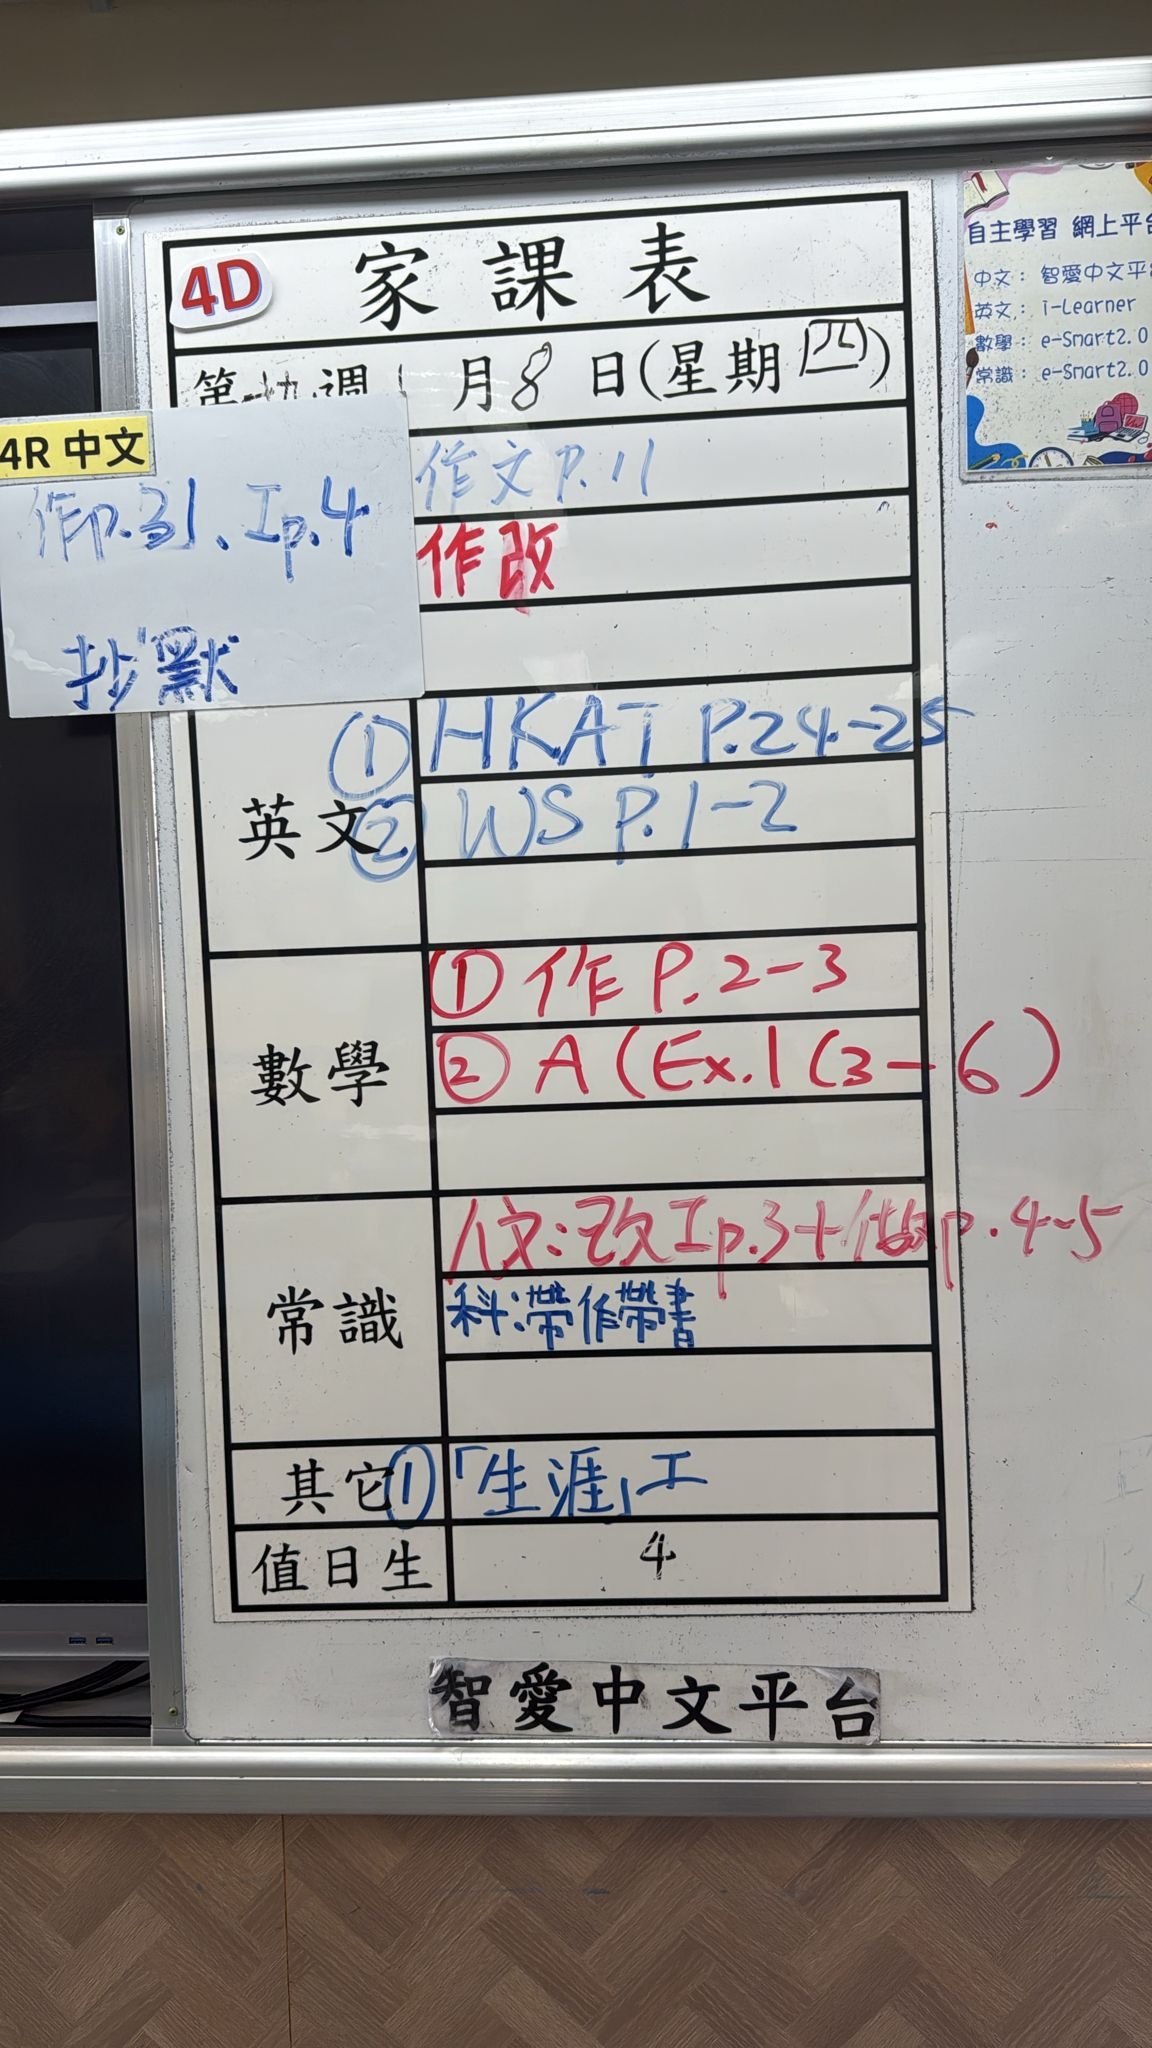 4D
家課表
月8日(星期四)
4R 中文
作p.31、工p.4
抄默
作文P.11
作改
英文
①HKAT P.24-25
②WS P.1-2
數學
①作P.2-3
②A(Ex.1(3-6)
常識
人文:改工p.3+做p.4-5
科:帶作帶書
其它
①「生涯」工
值日生
4
智愛中文平台
自主學習 網上平台
中文: 智愛中文平台
英文: i-Learner
數學: e-Smart2.0
常識: e-Smart2.0